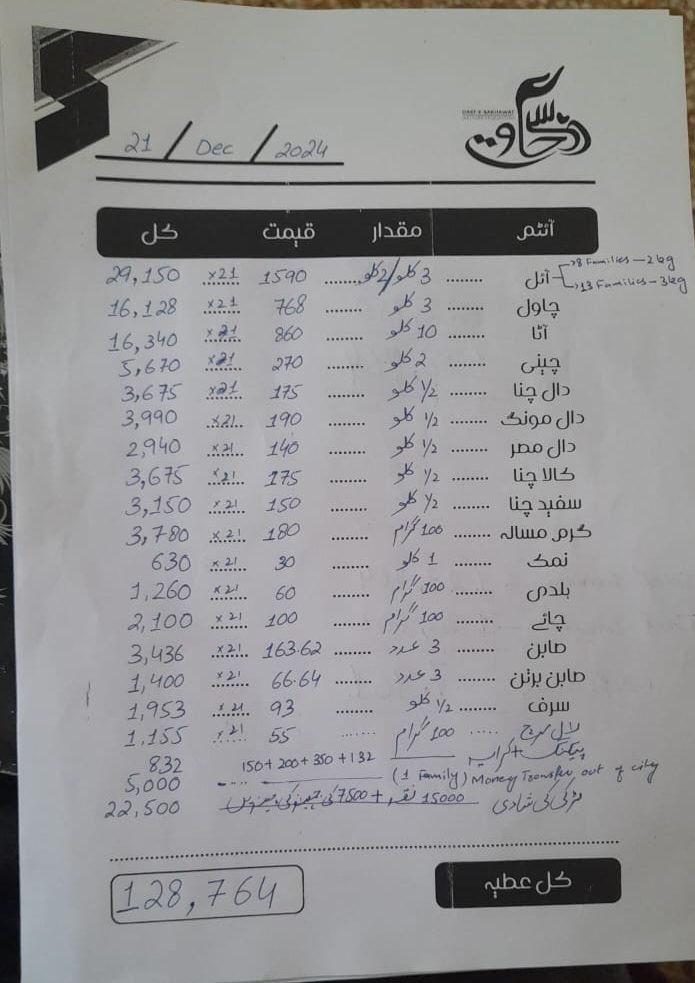 21 / Dec / 2024
دستِ سخاوت
آئٹم مقدار قیمت کل
آئل ........ 3 کلو/2 کلو ........ 1590 x21 29,150
→8 Families—2kg
→13 Families—3kg
چاول ........ 3 کلو ........ 768 x21 16,128
آٹا ........ 10 کلو ........ 860 x21 16,340
چینی ........ 2 کلو ........ 270 x21 5,670
دال چنا ........ 1/2 کلو ........ 175 x21 3,675
دال مونگ ........ 1/2 کلو ........ 190 x21 3,990
دال مصر ........ 1/2 کلو ........ 140 x21 2,940
کالا چنا ........ 1/2 کلو ........ 175 x21 3,675
سفید چنا ........ 1/2 کلو ........ 150 x21 3,150
گرم مسالہ ........ 100 گرام ........ 180 x21 3,780
نمک ........ 1 کلو ........ 30 x21 630
ہلدی ........ 100 گرام ........ 60 x21 1,260
چائے ........ 100 گرام ........ 100 x21 2,100
صابن ........ 3 عدد ........ 163.62 x21 3,436
صابن برتن ........ 3 عدد ........ 66.64 x21 1,400
سرف ........ 1/2 کلو ........ 93 x21 1,953
لال مرچ ..... 100 گرام ....... 55 x21 1,155
پیکنگ + کرایہ 150+200+350+132 832
(1 Family) Money Transfer out of city 5,000
لڑکی کی شادی 15000 نقد + 7500 کی 22,500
کل عطیہ 128,764